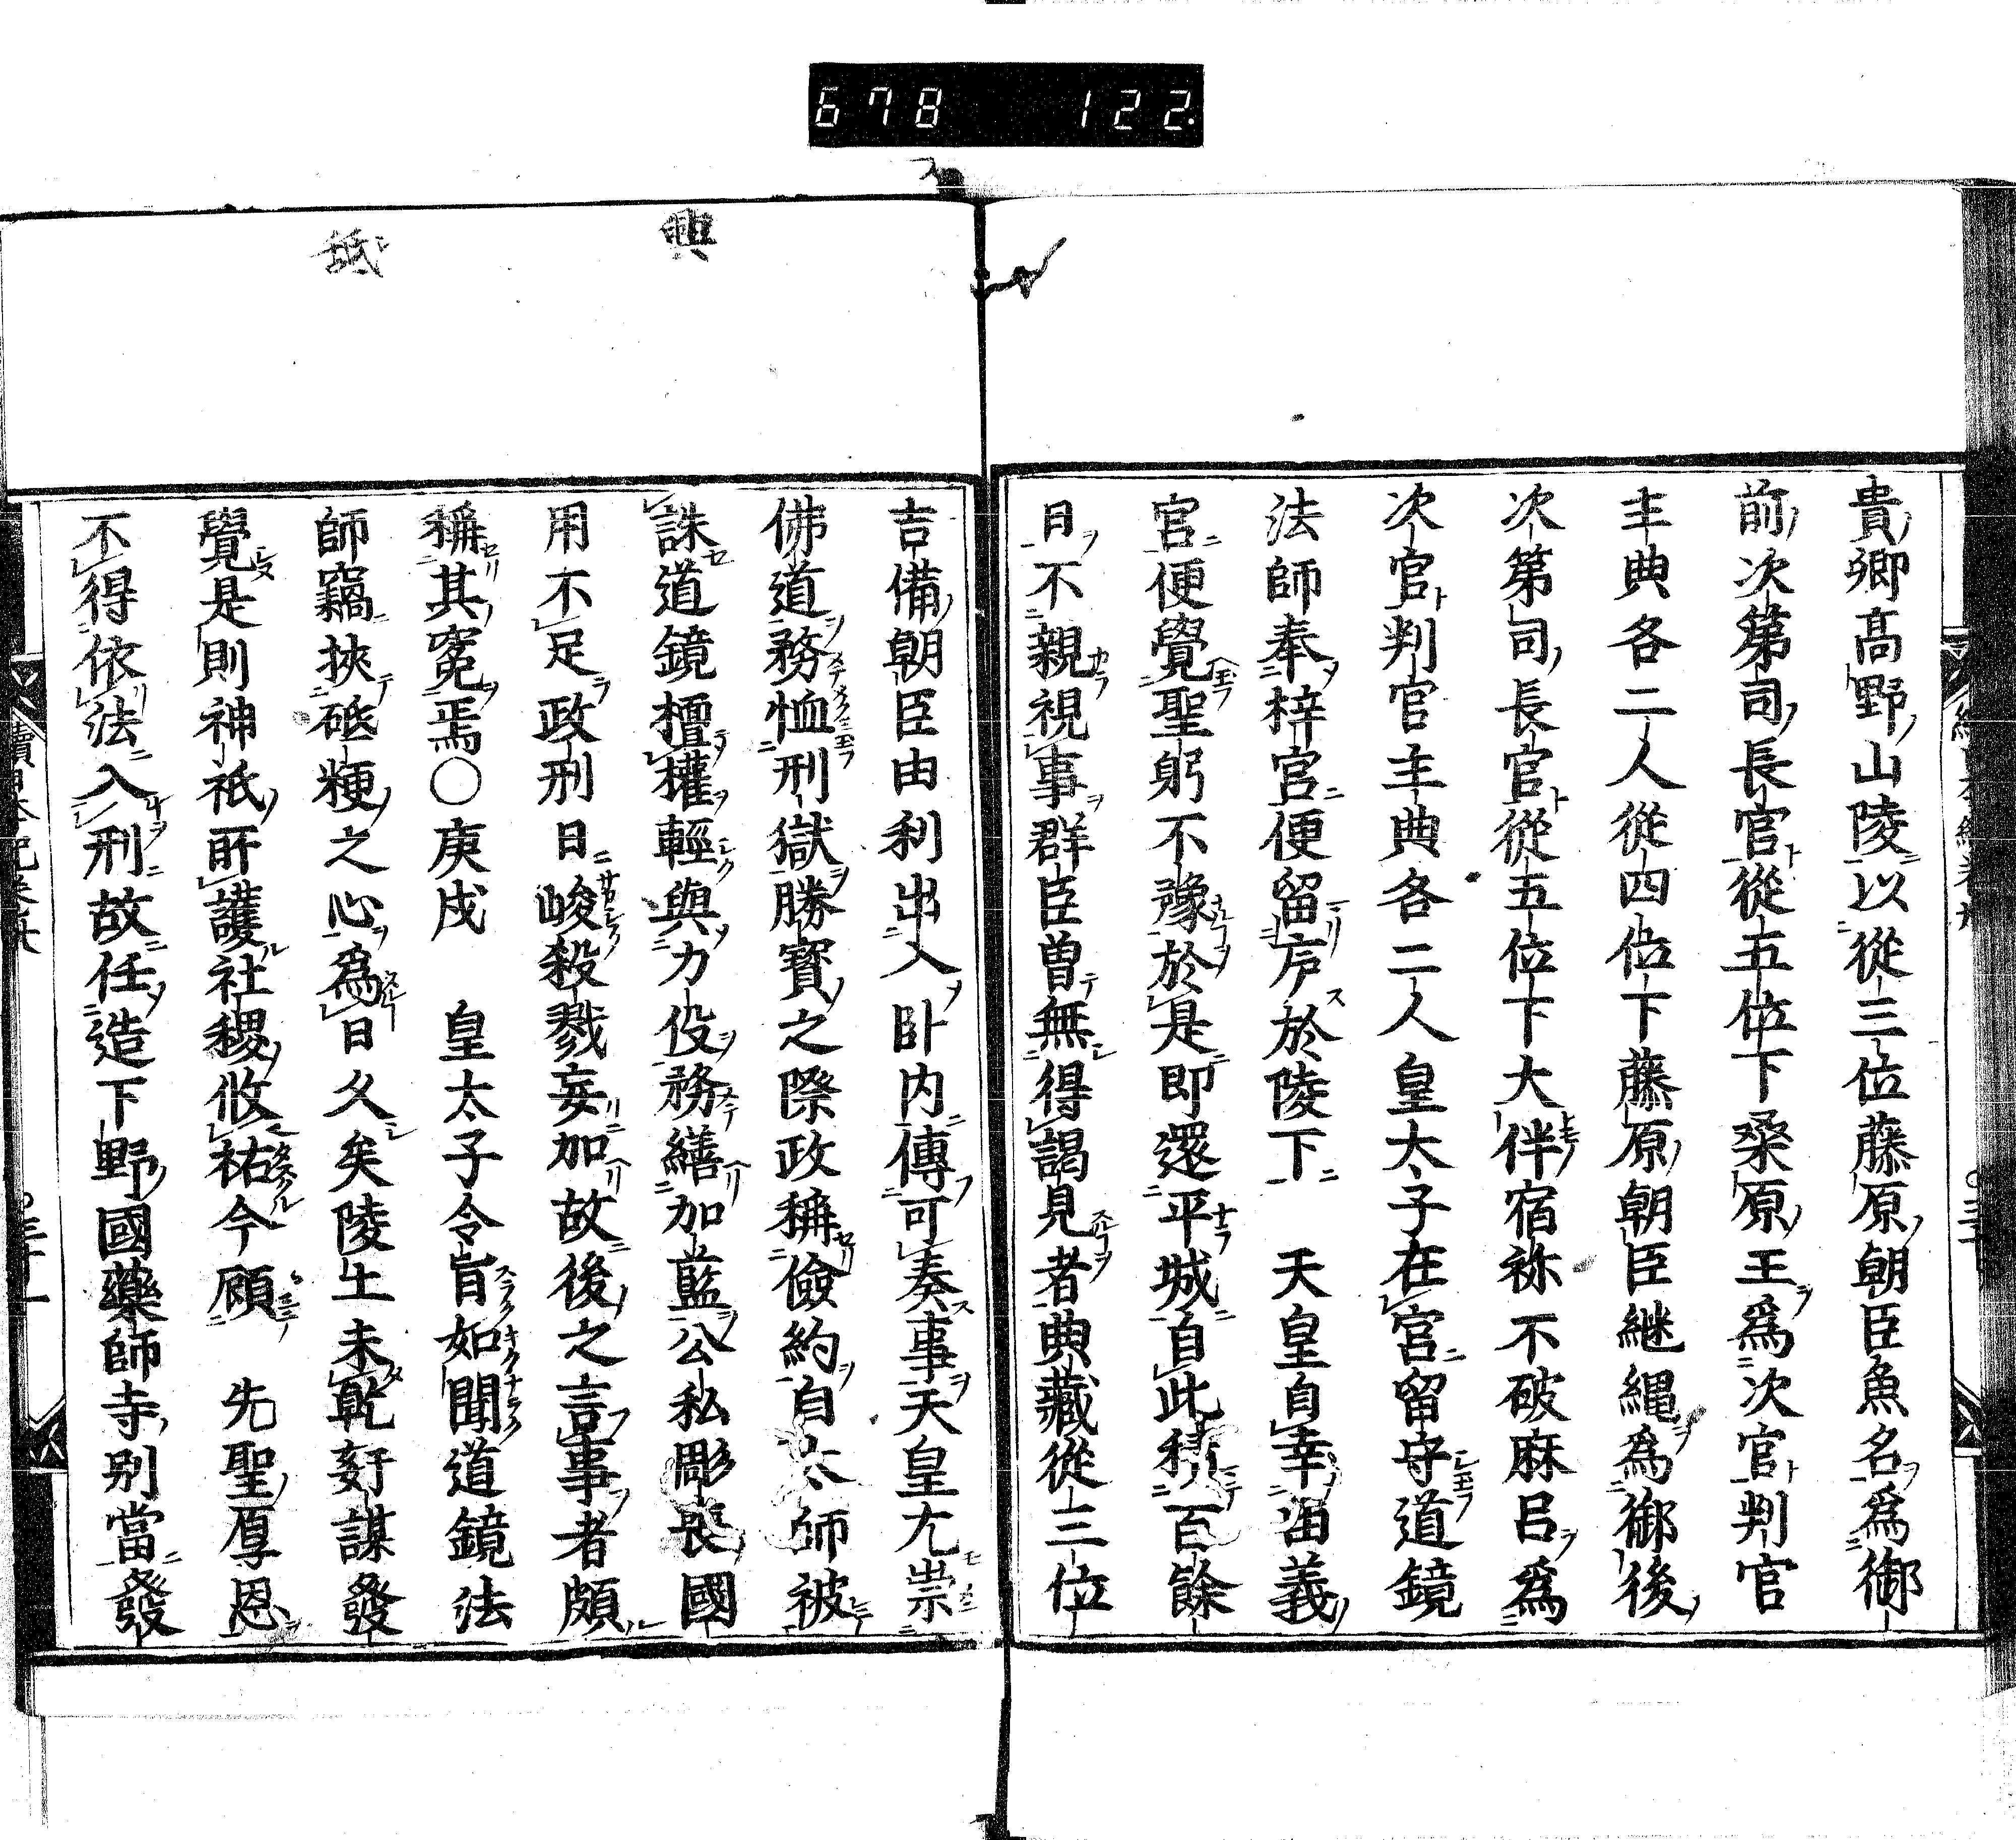 678 122.
貴卿髙野山陵以從三位藤原朝臣魚名爲御
前次第司長官從五位下桒原王爲次官判官
主典各二人從四位下藤原朝臣継縄爲御後
次第司長官從五位下大伴宿祢不破麻呂爲
次官判官主典各二人皇太子在宫留守道鏡
法師奉梓宫便留庐於陵下 天皇自幸由義
宫便覺聖躬不豫於是即還平城自此積百餘
日不親視事群臣曽無得謁見者典藏從三位
吉備朝臣由利出入卧内傳可奏事天皇尤崇
佛道務恤刑獄勝寳之際政稱儉約自太師被
誅道鏡擅權輕興力役務繕加藍公私彫喪國
用不足政刑日峻殺戮妄加故後之言事者頗
稱其寃焉〇庚戌 皇太子令旨如聞道鏡法
師竊挾砥粳之心爲日久矣陵土未乾姧謀發
覺是則神祇所護社稷攸祐今顧 先聖厚恩
不得依法入刑故任造下野國藥師寺別當發
興
舐